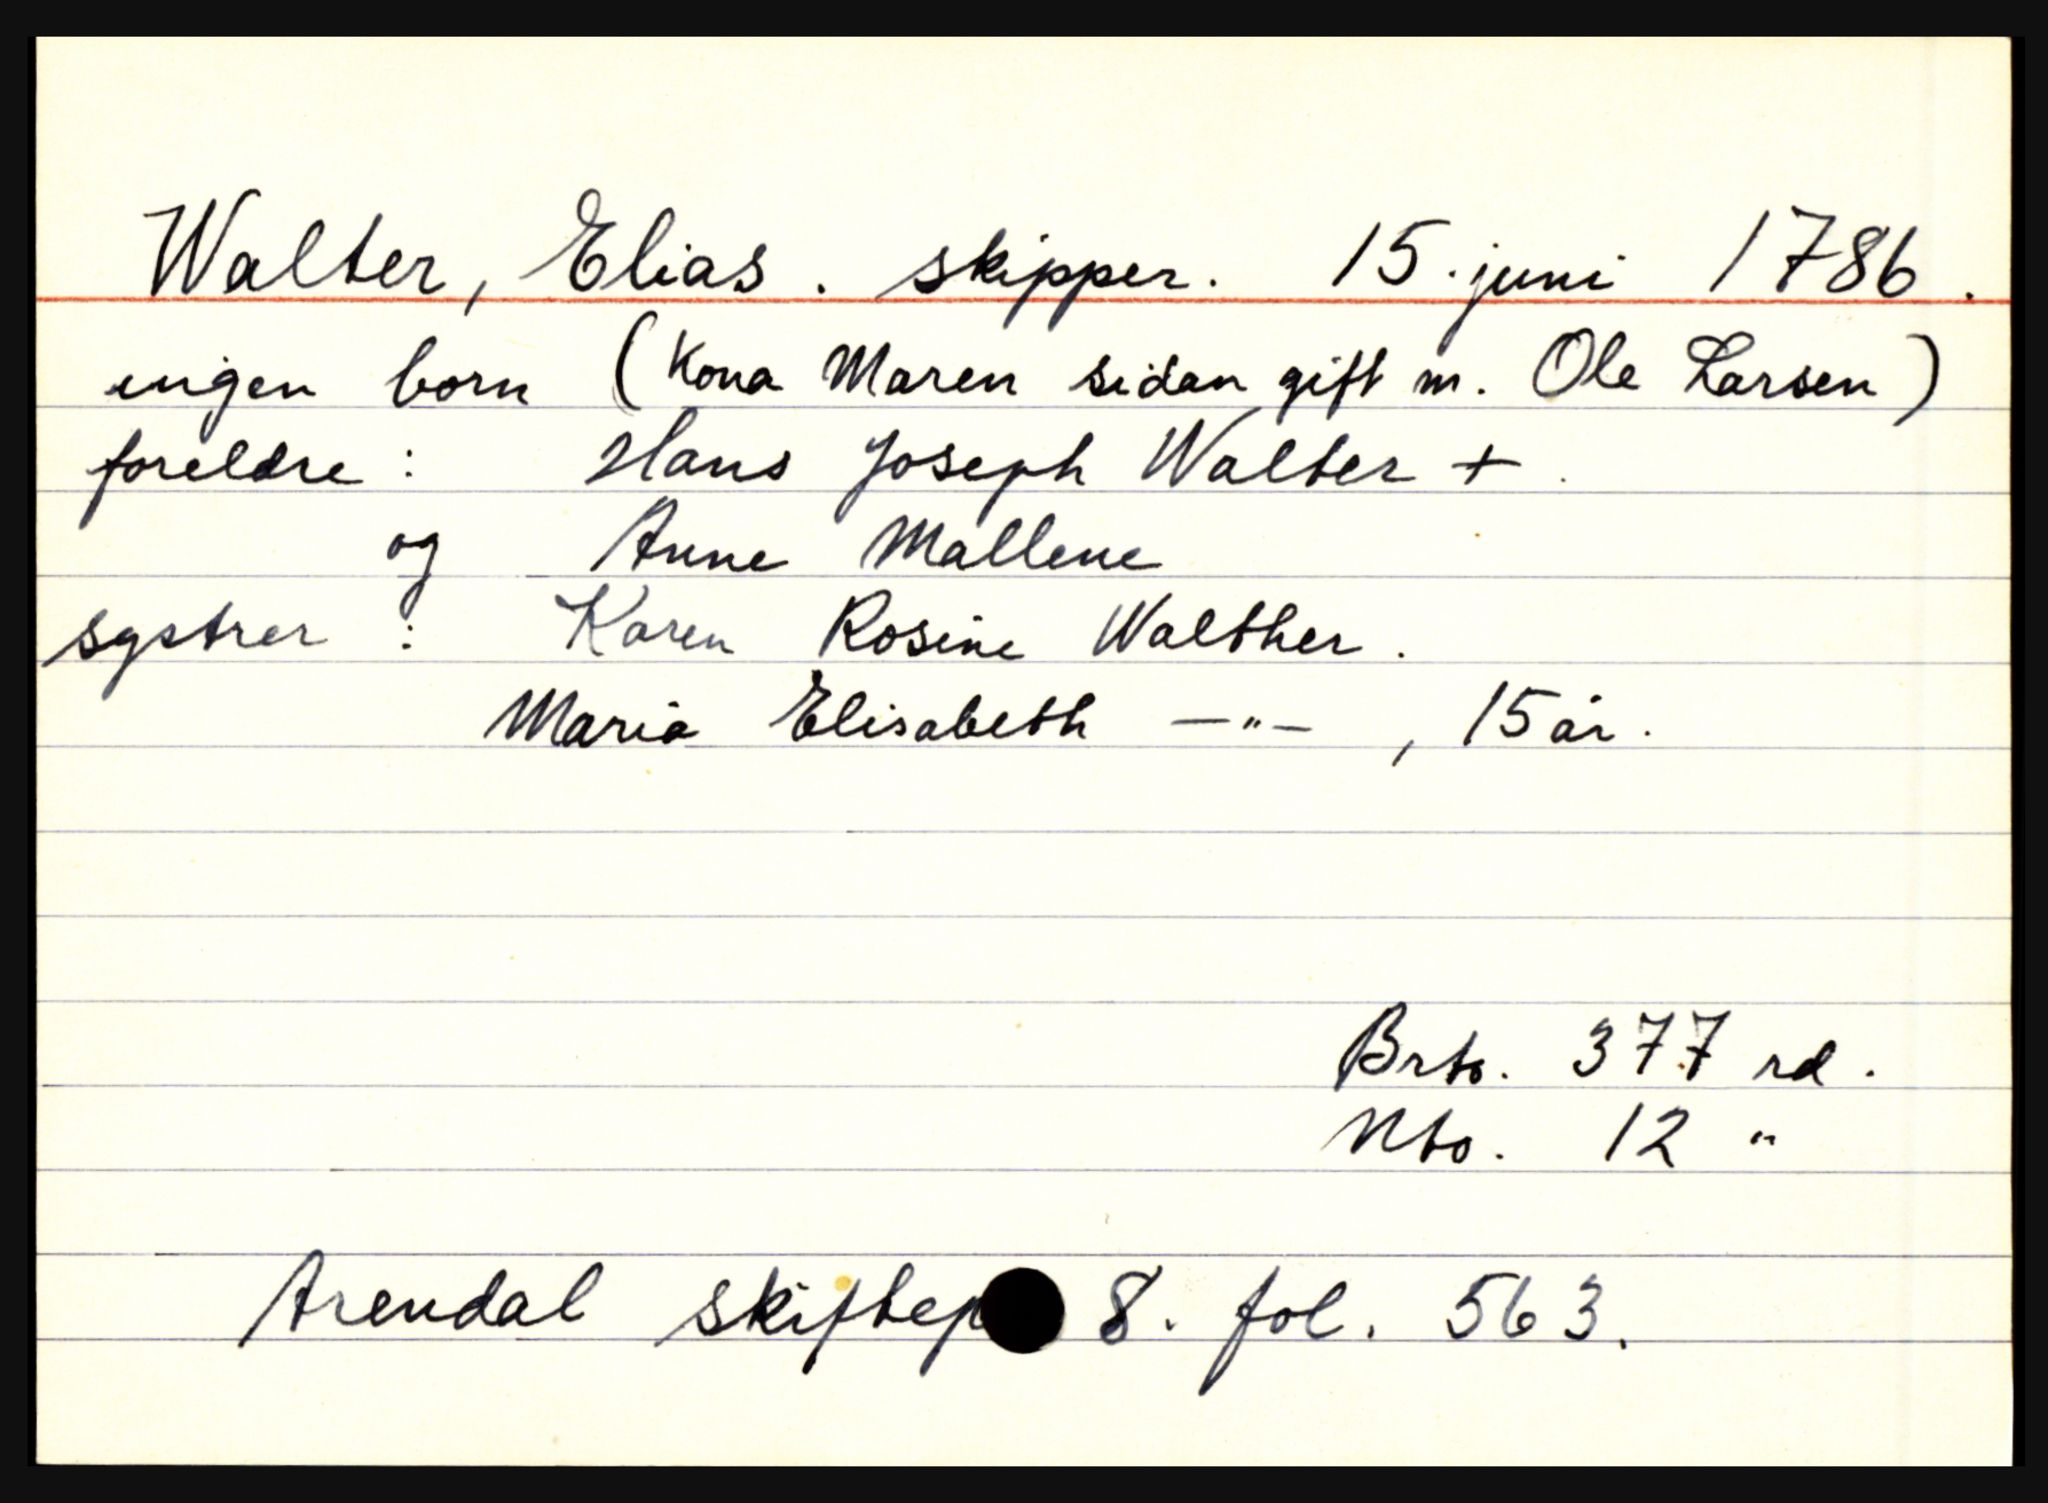 Walter, Elias. skipper. 15. juni 1786.
ingen born (Kona Maren sidan gift m. Ole Larsen)
foreldre: Hans Joseph Walter +.
og Anne Mallene
systrer: Karen Rosine Walther.
Maria Elisabeth —"—, 15 år.
Brto. 377 rd.
Nto. 12 "
Arendal skiftep 8. fol. 563.